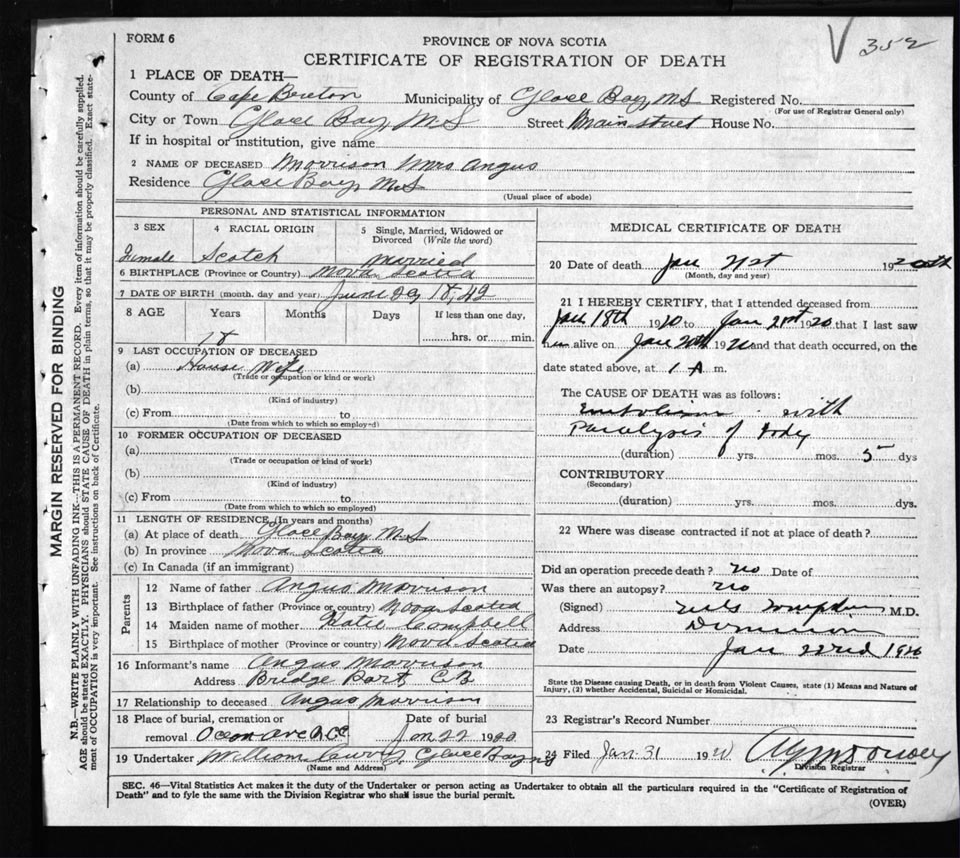 V 352
FORM 6
PROVINCE OF NOVA SCOTIA
CERTIFICATE OF REGISTRATION OF DEATH
1 PLACE OF DEATH—
County of Cape Breton Municipality of Glace Bay, N.S Registered No.
(For use of Registrar General only)
City or Town Glace Bay, N.S Street Main street House No.
If in hospital or institution, give name
2 NAME OF DECEASED Morrison Mrs Angus
Residence Glace Bay N.S
(Usual place of abode)
PERSONAL AND STATISTICAL INFORMATION
3 SEX 4 RACIAL ORIGIN 5 Single, Married, Widowed or Divorced (Write the word)
Female Scotch Married
6 BIRTHPLACE (Province or Country) Nova Scotia
7 DATE OF BIRTH (month, day and year) June 29 18,42
8 AGE Years Months Days If less than one day,
78 hrs. or min.
9 LAST OCCUPATION OF DECEASED
(a) House Wife
(Trade or occupation or kind or work)
(b)
(Kind of industry)
(c) From to
(Date from which to which so employed)
10 FORMER OCCUPATION OF DECEASED
(a)
(Trade or occupation or kind of work)
(b)
(Kind of industry)
(c) From to
(Date from which to which so employed)
11 LENGTH OF RESIDENCE (In years and months)
(a) At place of death Glace Bay N.S
(b) In province Nova Scotia
(c) In Canada (if an immigrant)
Parents
12 Name of father Angus Morrison
13 Birthplace of father (Province or country) Nova Scotia
14 Maiden name of mother Katie Campbell
15 Birthplace of mother (Province or Country) Nova Scotia
16 Informant's name Angus Morrison
Address Bridge Port, C.B
17 Relationship to deceased Angus Morrison
18 Place of burial, cremation or Date of burial
removal Ocean Ave Jan 22 1920
19 Undertaker William Glace Bay NS
(Name and Address)
MEDICAL CERTIFICATE OF DEATH
20 Date of death Jan 21st 19
(Month, day and year)
21 I HEREBY CERTIFY, that I attended deceased from
Jan 18th 1920 to Jan 21st 1920 that I last saw
alive on Jan 20th 1920 and that death occurred, on the
date stated above, at 1 A m.
The CAUSE OF DEATH was as follows:
Embolism with
Paralysis of body
(duration) yrs. mos. 5 dys
CONTRIBUTORY
(Secondary)
(duration) yrs. mos. dys.
22 Where was disease contracted if not at place of death?
Did an operation precede death? no Date of
Was there an autopsy? no
(Signed) Tompkins M.D.
Address Dominion
Date Jan 22nd 1920
State the Disease causing Death, or in death from Violent Causes, state (1) Means and Nature of
Injury, (2) whether Accidental, Suicidal or Homicidal.
23 Registrar's Record Number
24 Filed Jan. 31 1920
Division Registrar
SEC. 46—Vital Statistics Act makes it the duty of the Undertaker or person acting as Undertaker to obtain all the particulars required in the "Certificate of Registration of
Death" and to fyle the same with the Division Registrar who shall issue the burial permit.
(OVER)
MARGIN RESERVED FOR BINDING
N.B.—WRITE PLAINLY WITH UNFADING INK—THIS IS A PERMANENT RECORD. Every item of information should be carefully supplied.
AGE should be stated EXACTLY. PHYSICIANS should STATE CAUSE OF DEATH in plain terms, so that it may be properly classified. Exact state-
ment of OCCUPATION is very important. See instructions on back of Certificate.